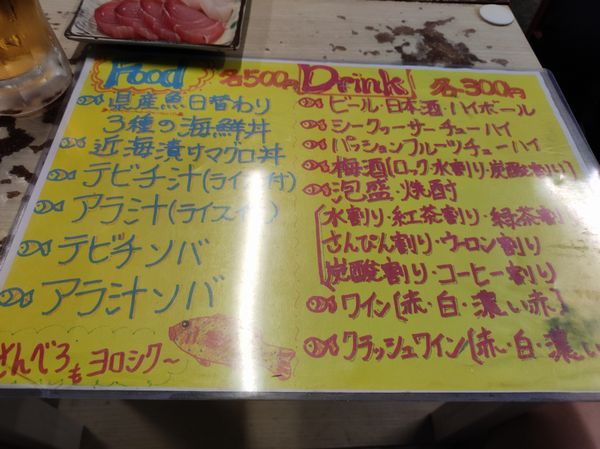 Food 各500円
県産魚日替わり
3種の海鮮丼
近海漬けマグロ丼
テビチ汁(ライス付)
アラ汁(ライス
テビチソバ
アラ汁ソバ
さんべろもヨロシク〜
Drink 各300円
ビール・日本酒・ハイボール
シークヮーサーチューハイ
パッションフルーツチューハイ
梅酒(ロック・水割り・炭酸割り)
泡盛・焼酎
水割り・紅茶割り・緑茶割
さんぴん割り・ウーロン割り
炭酸割り・コーヒー割り
ワイン(赤・白・濃い赤)
クラッシュワイン(赤・白・濃い